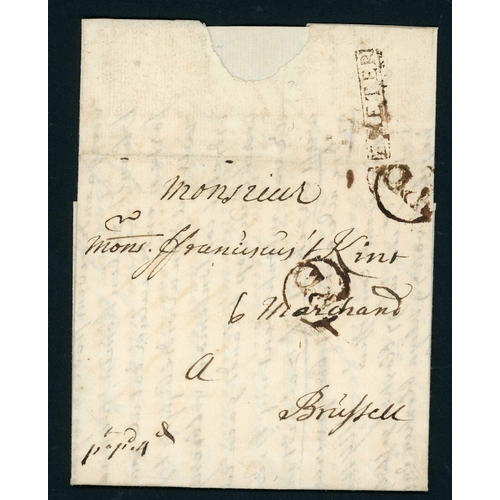 EXETER
Monsieur
Mons. ffranciscus 't Kint
Marchand
A
Brussell